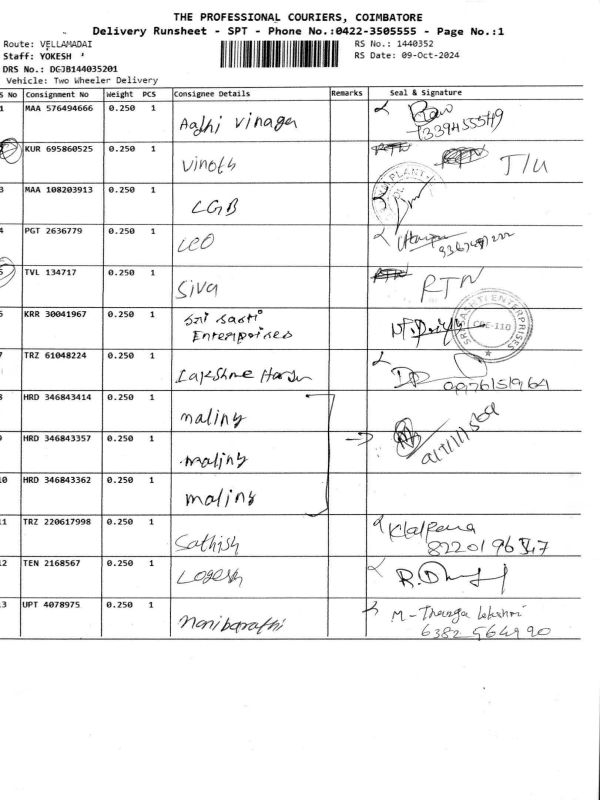 THE PROFESSIONAL COURIERS, COIMBATORE
Delivery Runsheet - SPT - Phone No.:0422-3505555 - Page No.:1
Route: VELLAMADAI
RS No.: 1440352
Staff: YOKESH
RS Date: 09-Oct-2024
DRS No.: DGJB144035201
Vehicle: Two Wheeler Delivery
S No Consignment No Weight PCS Consignee Details Remarks Seal & Signature
1 MAA 576494666 0.250 1 Aadhi Vinaga
KUR 695860525 0.250 1 Vinoth RTN T/U
3 MAA 108203913 0.250 1 LGB
4 PGT 2636779 0.250 1 LEO
5 TVL 134717 0.250 1 Siva RTN
6 KRR 30041967 0.250 1 Sri Sasti
Enterprises
SRI SASHTI ENTERPRISES
CBE-110
7 TRZ 61048224 0.250 1 Lakshme
8 HRD 346843414 0.250 1 maliny
9 HRD 346843357 0.250 1 maliny
10 HRD 346843362 0.250 1 maliny
11 TRZ 220617998 0.250 1 Sathish Kalpana
12 TEN 2168567 0.250 1 Logesh
13 UPT 4078975 0.250 1 Manibarathi M-
6382564990